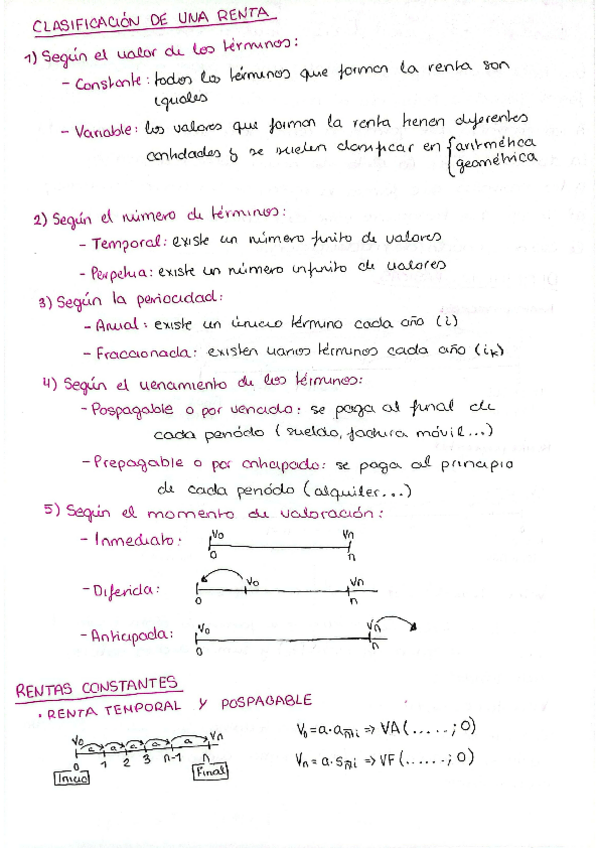 CLASIFICACIÓN DE UNA RENTA
1) Según el valor de los términos:
- Constante: todos los términos que forman la renta son
iguales
- Variable: los valores que forman la renta tienen diferentes
cantidades y se suelen clasificar en { aritmética
geométrica
2) Según el número de términos:
- Temporal: existe un número finito de valores
- Perpetua: existe un número infinito de valores
3) Según la periocidad:
- Anual: existe un único término cada año (i)
- Fraccionada: existen varios términos cada año (iₖ)
4) Según el vencimiento de los términos:
- Pospagable o por vencido: se paga al final de
cada período (sueldo, factura móvil...)
- Prepagable o por anticipado: se paga al principio
de cada período (alquiler...)
5) Según el momento de valoración:
- Inmediato: V₀ Vn
0 n
- Diferida: V₀ Vn
0 n
- Anticipada: V₀ Vn
0 n
RENTAS CONSTANTES
· RENTA TEMPORAL Y POSPAGABLE
V₀ a a a a a Vn
0 1 2 3 n-1 n
Inicio Final
V₀ = a · a n̅| i => VA (.....; 0)
Vn = a · s n̅| i => VF (.....; 0)